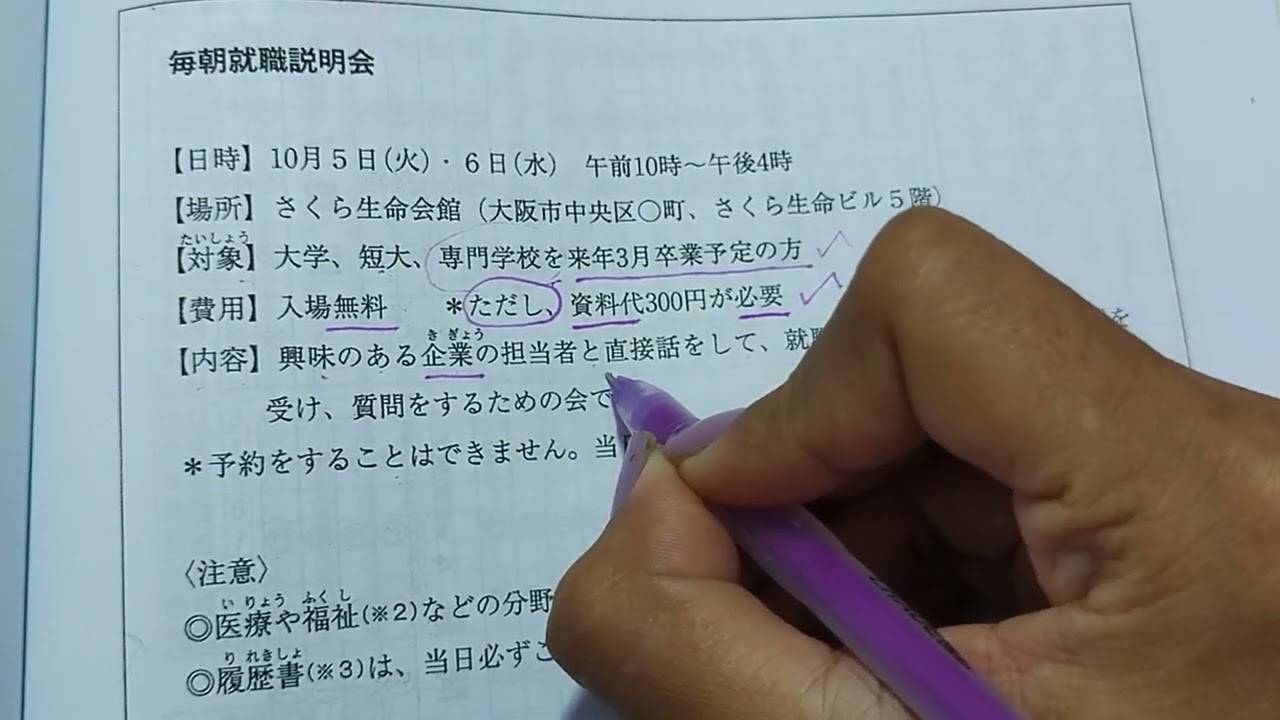 毎朝就職説明会
【日時】 10月5日(火)・6日(水) 午前10時～午後4時
【場所】 さくら生命会館（大阪市中央区○町、さくら生命ビル5階）
たいしょう
【対象】 大学、短大、専門学校を来年3月卒業予定の方
【費用】 入場無料 ＊ただし、資料代300円が必要
き ぎょう
【内容】 興味のある企業の担当者と直接話をして、就 を
受け、質問をするための会で
＊予約をすることはできません。当
〈注意〉
い りょう ふく し
◎医療や福祉(※2)などの分野
り れきしょ
◎履歴書(※3)は、当日必ずご